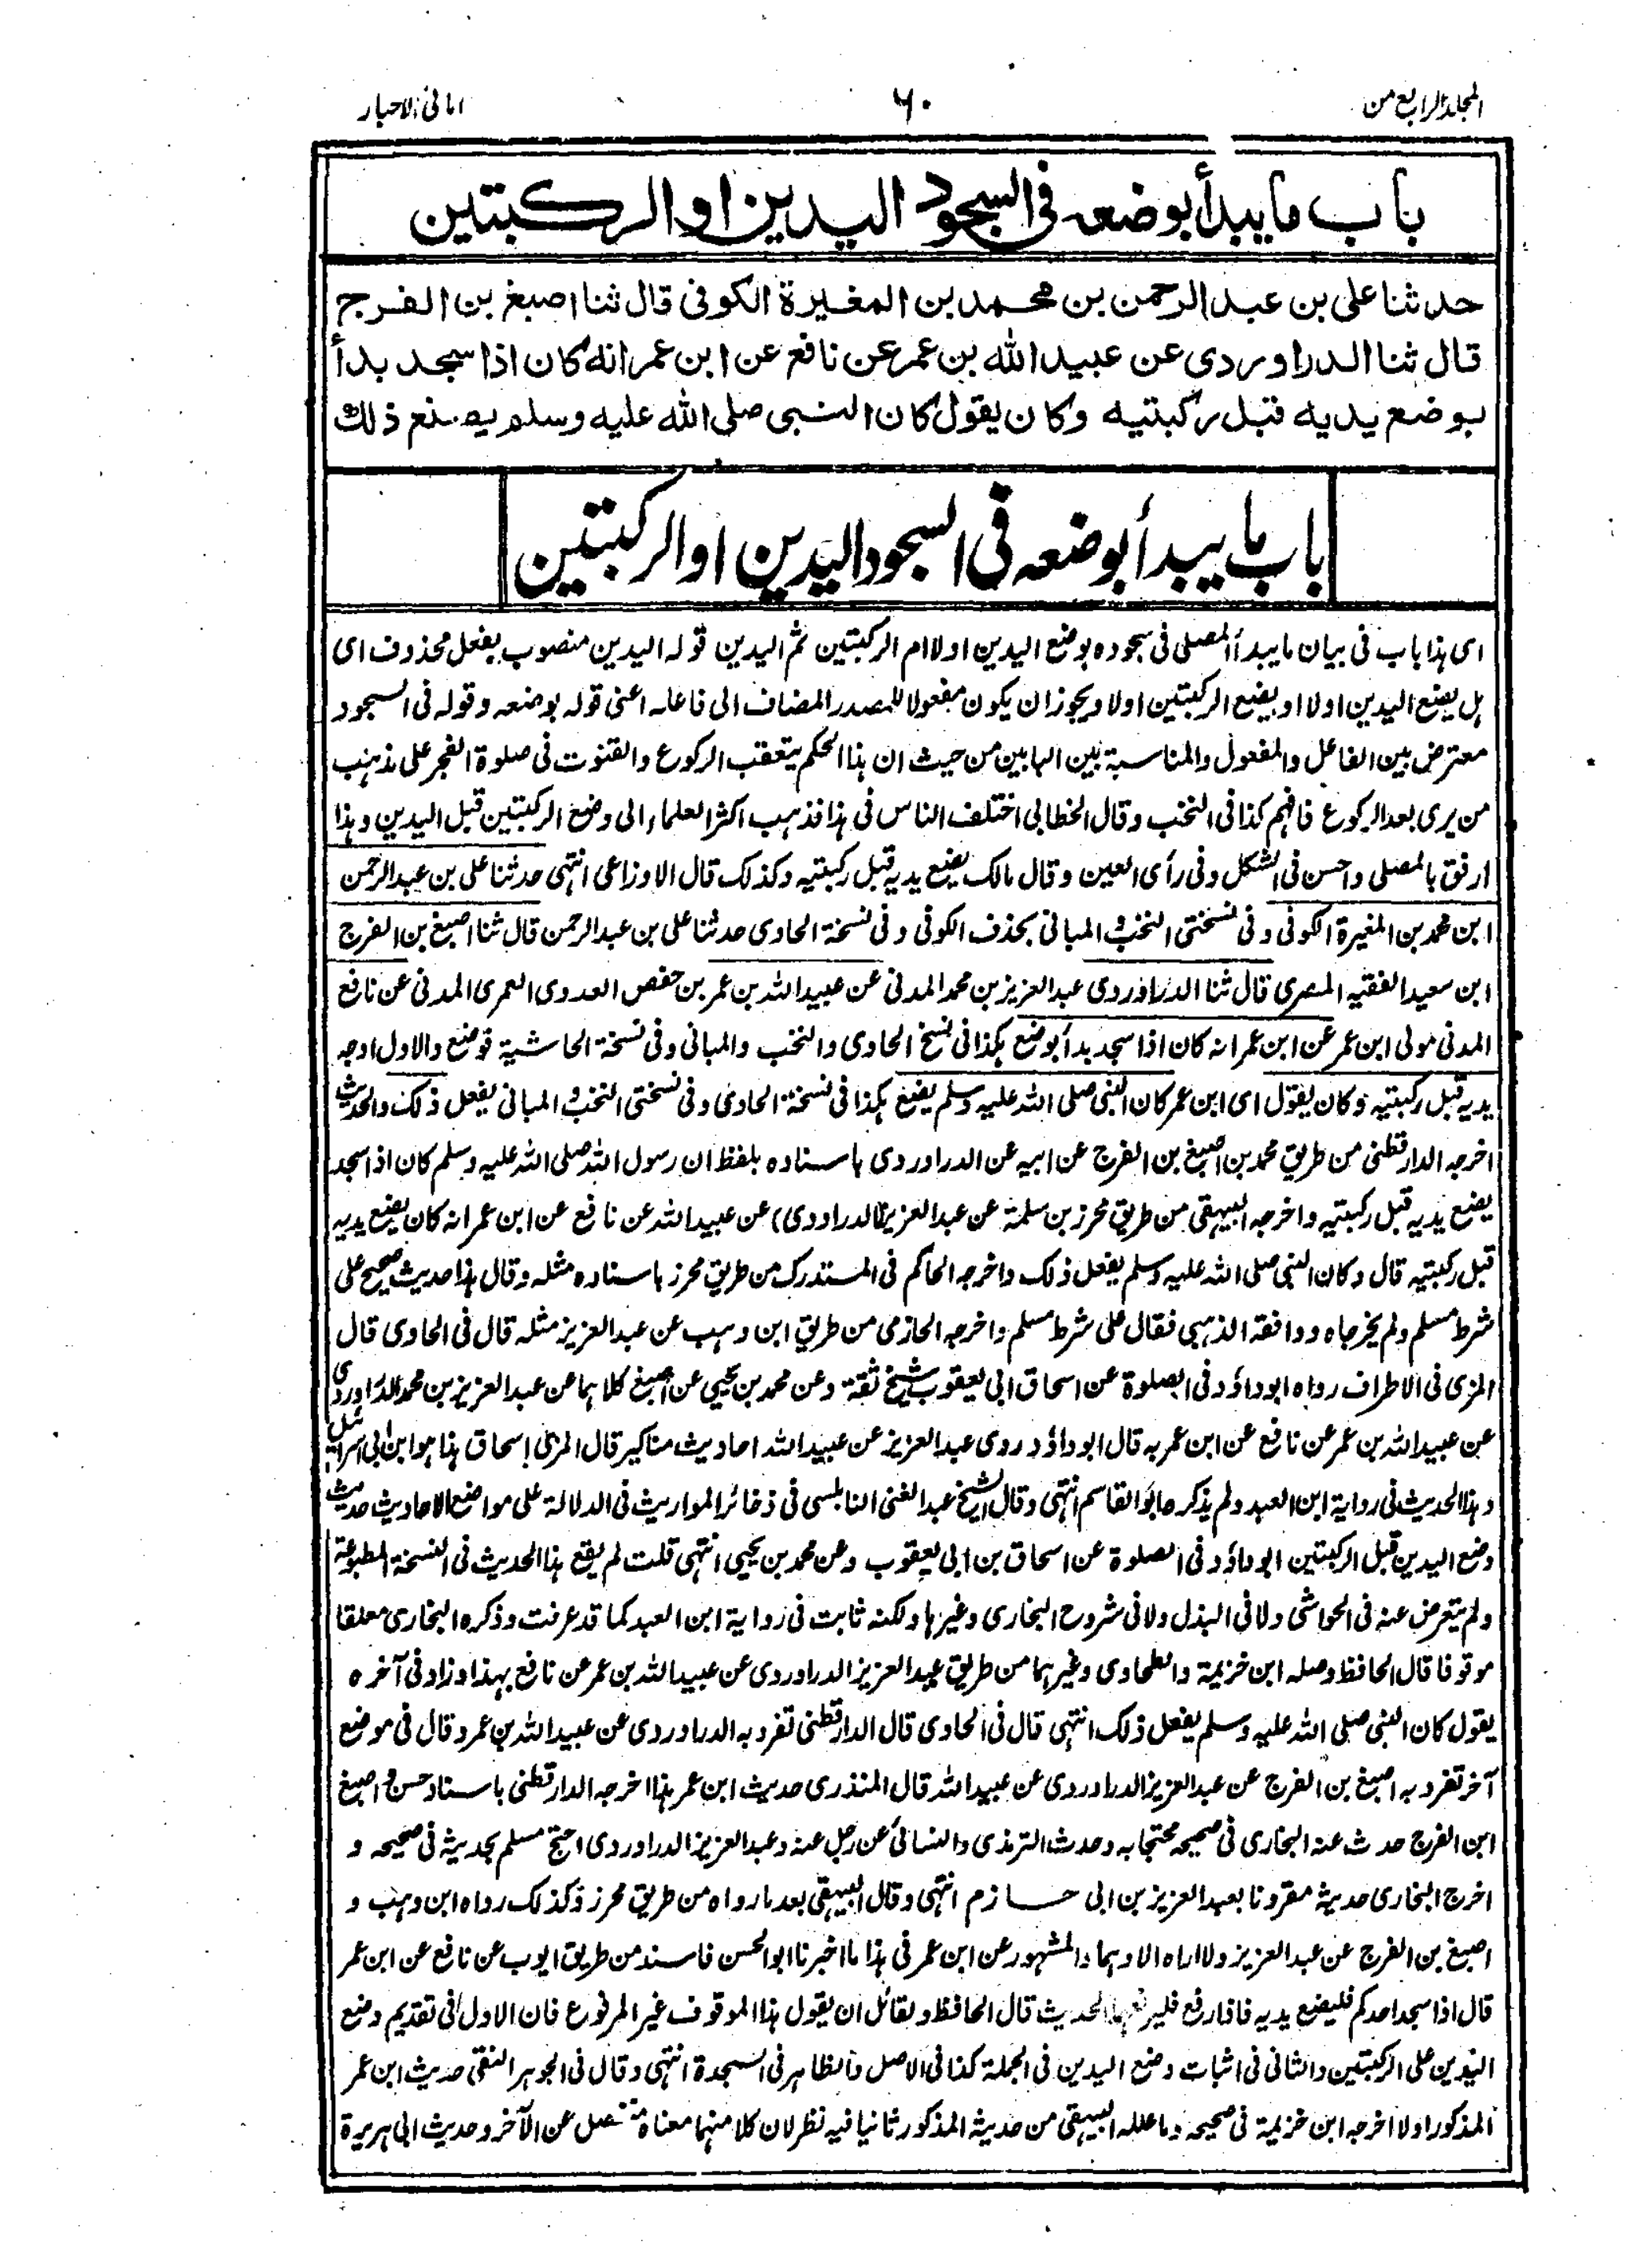 المجلد الرابع من
٦٠
امانی الاحبار
باب ما يبدأ بوضعه فی السجود اليدين او الركبتين
حدثنا علی بن عبد الرحمن بن محمد بن المغيرة الكوفی قال ثنا اصبغ بن الفرج
قال ثنا الدراوردی عن عبيد الله بن عمر عن نافع عن ابن عمر انه كان اذا سجد بدأ
بوضع يديه قبل ركبتيه وكان يقول كان النبی صلی الله عليه وسلم يصنع ذلك
باب ما يبدأ بوضعه فی السجود اليدين او الركبتين
ای هذا باب فی بيان ما يبدأ المصلی فی سجوده بوضع اليدين اولا ام الركبتين ثم اليدين قوله اليدين منصوب بفعل محذوف ای
هل يضع اليدين اولا او يضع الركبتين اولا ويجوز ان يكون مفعولا للمصدر المضاف الی فاعله اعنی قوله بوضعه وقوله فی السجود
معترض بين الفاعل والمفعول والمناسبة بين البابين من حيث ان هذا الحكم يتعقب الركوع والقنوت فی صلوة الفجر علی مذهب
من يری بعد الركوع فافهم كذا فی النخب وقال الخطابی اختلف الناس فی هذا فذهب اكثر العلماء الی وضع الركبتين قبل اليدين وهذا
ارفق بالمصلی واحسن فی الشكل وفی رأی العين وقال مالك يضع يديه قبل ركبتيه وكذلك قال الاوزاعی انتهی حدثنا علی بن عبد الرحمن
ابن محمد بن المغيرة الكوفی وفی نسختی النخب والمبانی بحذف الكوفی وفی نسخة الحاوی حدثنا علی بن عبد الرحمن قال ثنا اصبغ بن الفرج
ابن سعيد الفقيه المصری قال ثنا الدراوردی عبد العزيز بن محمد المدنی عن عبيد الله بن عمر بن حفص العدوی العمری المدنی عن نافع
المدنی مولی ابن عمر عن ابن عمر انه كان اذا سجد بدأ بوضع هكذا فی نسخ الحاوی والنخب والمبانی وفی نسخة الحاشية فوضع والاول اوجه
يديه قبل ركبتيه وكان يقول ای ابن عمر كان النبی صلی الله عليه وسلم يضع هكذا فی نسخة الحاوی وفی نسختی النخب والمبانی يفعل ذلك والحديث
اخرجه الدارقطنی من طريق محمد بن اصبغ بن الفرج عن ابيه عن الدراوردی باسناده بلفظ ان رسول الله صلی الله عليه وسلم كان اذا سجد
يضع يديه قبل ركبتيه واخرجه البيهقی من طريق محرز بن سلمة عن عبد العزيز (الدراوردی) عن عبيد الله عن نافع عن ابن عمر انه كان يضع يديه
قبل ركبتيه قال وكان النبی صلی الله عليه وسلم يفعل ذلك واخرجه الحاكم فی المستدرك من طريق محرز باسناده مثله وقال هذا حديث صحيح علی
شرط مسلم ولم يخرجاه ووافقه الذهبی فقال علی شرط مسلم واخرجه الحازمی من طريق ابن وهب عن عبد العزيز مثله قال فی الحاوی قال
المزی فی الاطراف رواه ابو داؤد فی الصلوة عن اسحاق ابی يعقوب شيخ ثقة وعن محمد بن يحيی عن اصبغ كلاهما عن عبد العزيز بن محمد الدراوردی
عن عبيد الله بن عمر عن نافع عن ابن عمر به قال ابو داؤد روی عبد العزيز عن عبيد الله احاديث مناكير قال المزی اسحاق هذا هو ابن ابی اسرائيل
وهذا الحديث فی رواية ابن العبد ولم يذكره ابو القاسم انتهی وقال الشيخ عبد الغنی النابلسی فی ذخائر المواريث فی الدلالة علی مواضع الاحاديث حديث
وضع اليدين قبل الركبتين ابو داؤد فی الصلوة عن اسحاق بن ابی يعقوب وعن محمد بن يحيی انتهی قلت لم يقع هذا الحديث فی النسخة المطبوعة
ولم يتعرض عنه فی الحواشی ولا فی البذل ولا فی شروح البخاری وغيرها ولكنه ثابت فی رواية ابن العبد كما قد عرفت وذكره البخاری معلقا
موقوفا قال الحافظ وصله ابن خزيمة والطحاوی وغيرهما من طريق عبد العزيز الدراوردی عن عبيد الله بن عمر عن نافع بهذا وزاد فی آخره
يقول كان النبی صلی الله عليه وسلم يفعل ذلك انتهی قال فی الحاوی قال الدارقطنی تفرد به الدراوردی عن عبيد الله بن عمر وقال فی موضع
آخر تفرد به اصبغ بن الفرج عن عبد العزيز الدراوردی عن عبيد الله قال المنذری حديث ابن عمر هذا اخرجه الدارقطنی باسناد حسن و اصبغ
ابن الفرج حدث عنه البخاری فی صحيحه محتجا به وحدث الترمذی والنسائی عن رجل عنه وعبد العزيز الدراوردی احتج مسلم بحديثه فی صحيحه و
اخرج البخاری حديثه مقرونا بعبد العزيز بن ابی حازم انتهی وقال البيهقی بعد ما رواه من طريق محرز وكذلك رواه ابن وهب و
اصبغ بن الفرج عن عبد العزيز ولا اراه الا وهما والمشهور عن ابن عمر فی هذا ما اخبرنا ابو الحسن فاسند من طريق ايوب عن نافع عن ابن عمر
قال اذا سجد احدكم فليضع يديه فاذا رفع فليرفعهما الحديث قال الحافظ ولقائل ان يقول هذا الموقوف غير المرفوع فان الاول فی تقديم وضع
اليدين علی الركبتين والثانی فی اثبات وضع اليدين فی الجملة كذا فی الاصل والظاهر فی السجدة انتهی وقال فی الجوهر النقی حديث ابن عمر
المذكور اولا اخرجه ابن خزيمة فی صحيحه وما علله البيهقی من حديثه المذكور ثانيا فيه نظر لان كلا منهما معناه منفصل عن الآخر وحديث ابی هريرة